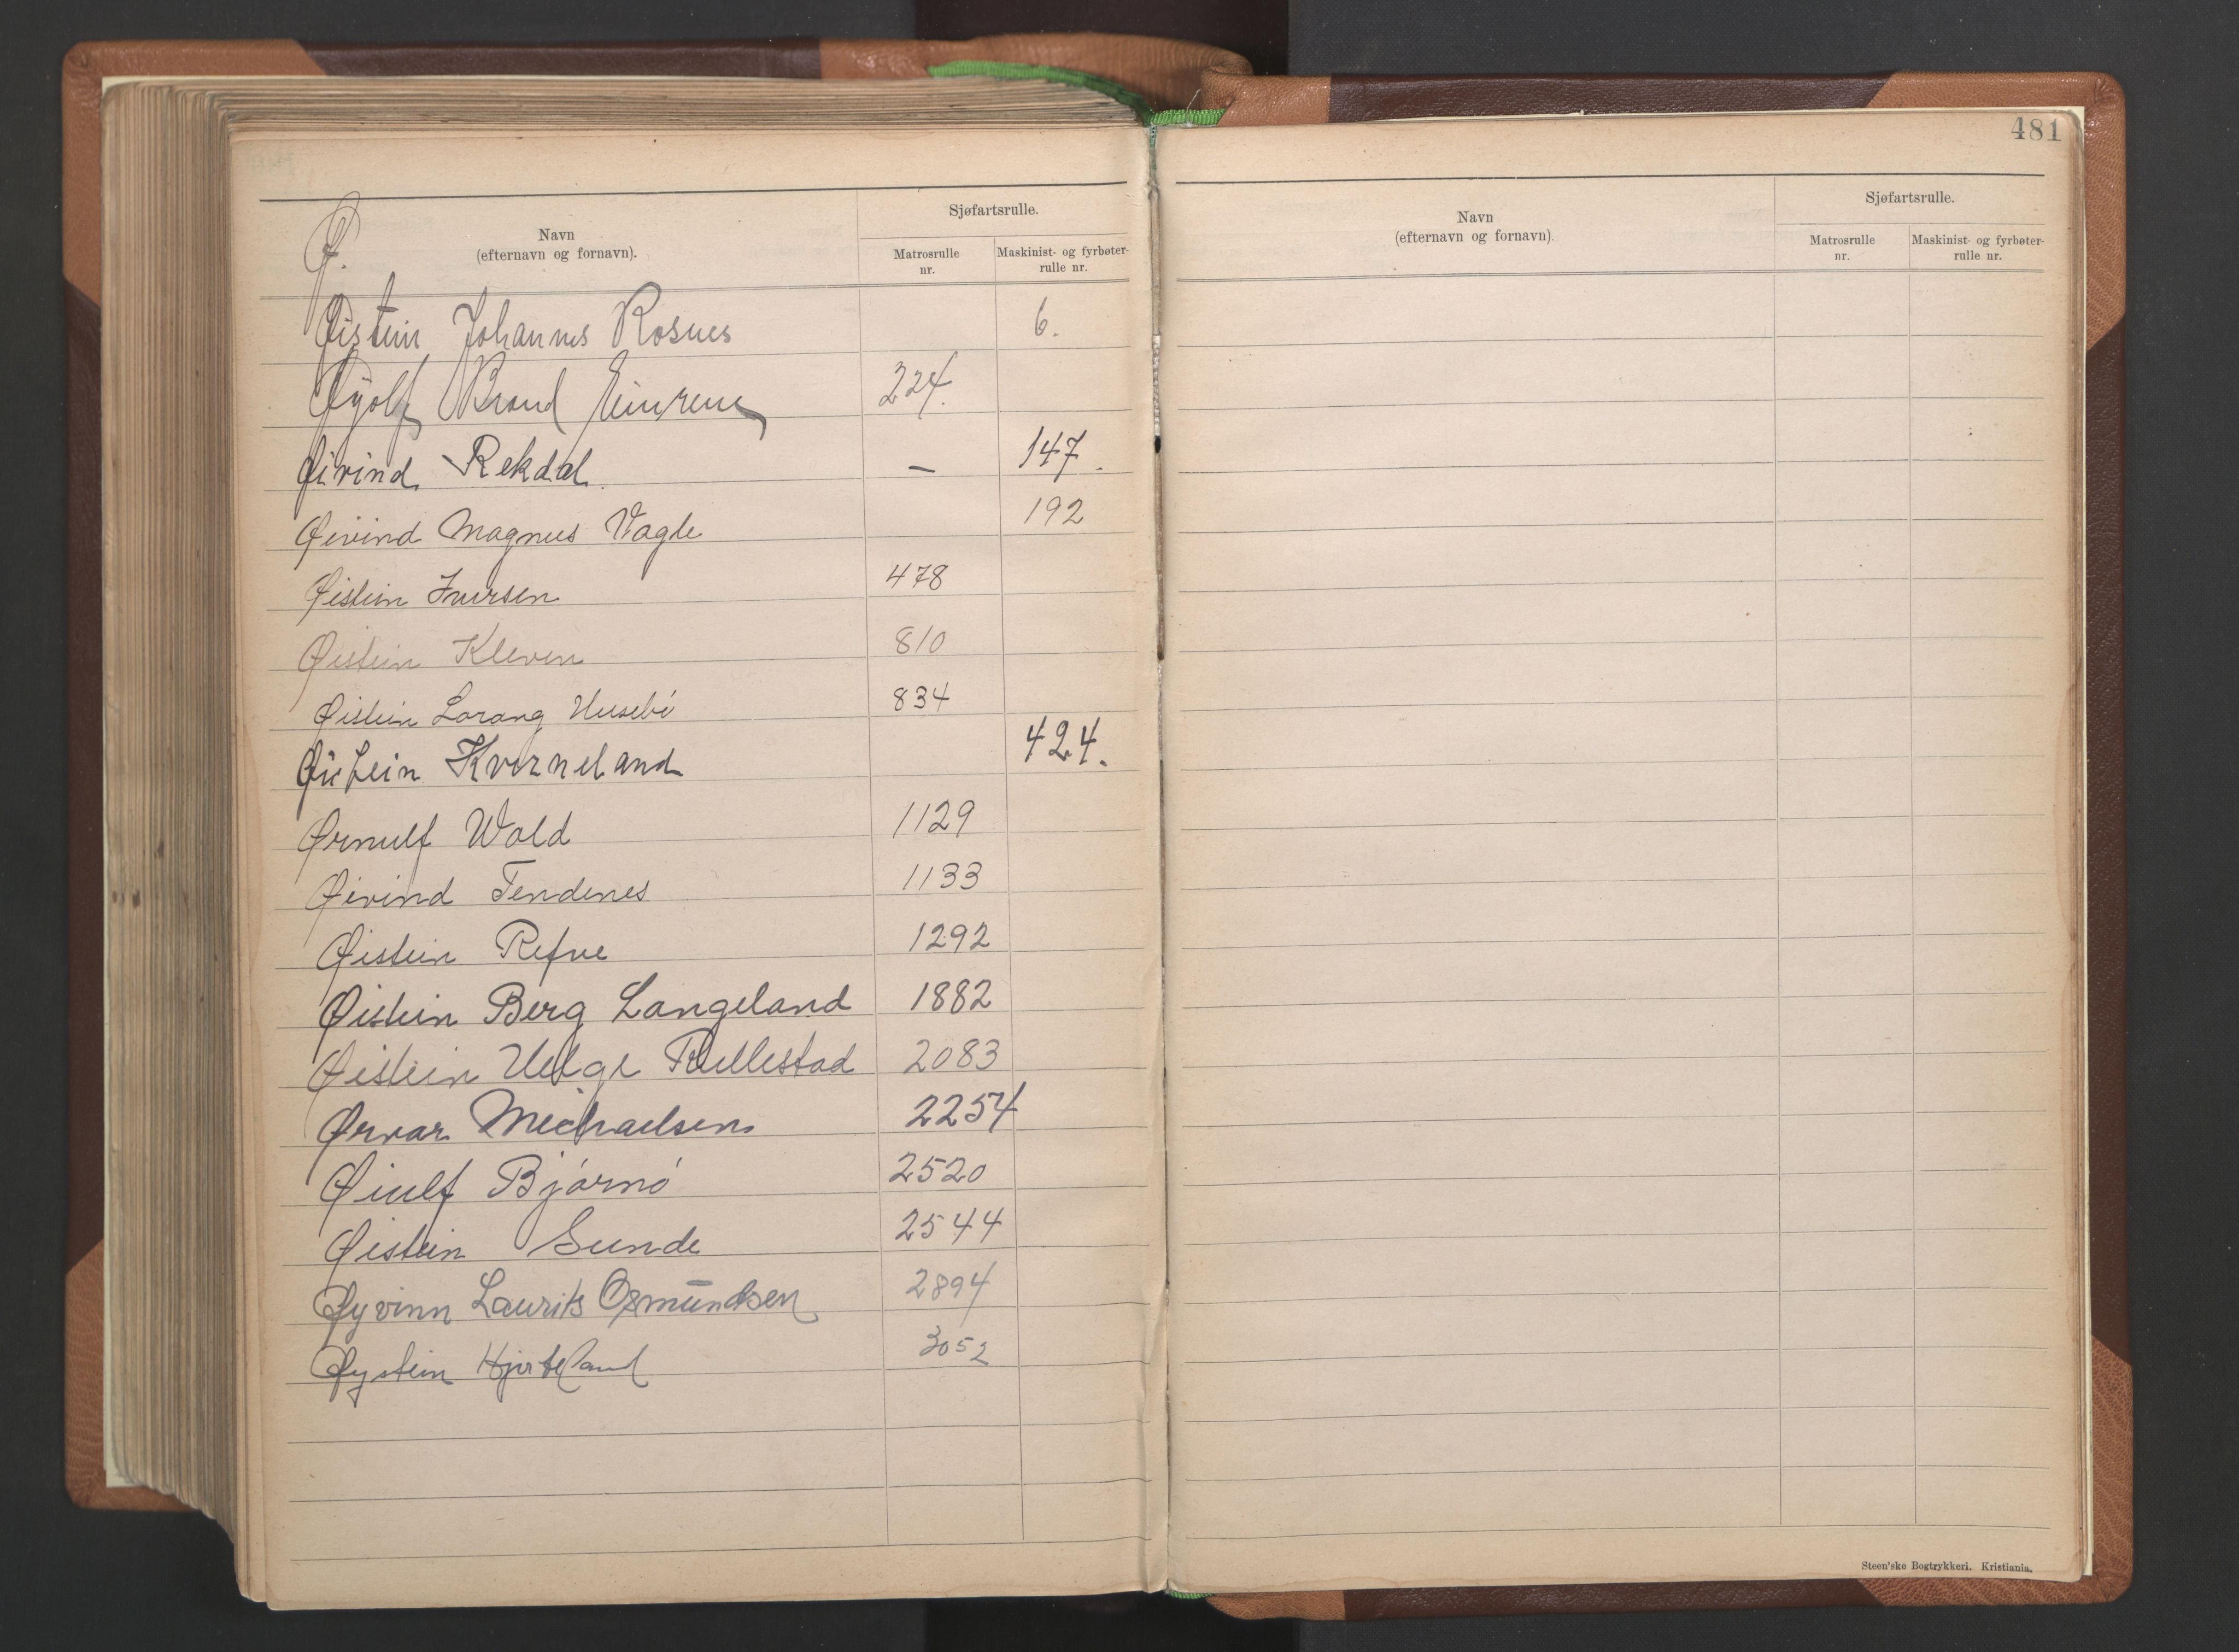 Ø.
Navn
(efternavn og fornavn).
Sjøfartsrulle.
Matrosrulle nr.
Maskinist- og fyrbøter-rulle nr.
Øistein Johannes Rosnes 6.
Øyolf Brand Einrem 224.
Øivind Rekdal. — 147.
Øivind Magnus Vagle 192
Øistein Iversen 478
Øistein Kleven 810
Øistein Lorang Husebö 834
Øistein Kverneland 424.
Ørnulf Wold 1129
Øivind Tendenes 1133
Øistein Refve 1292
Øistein Berg Langeland 1882
Øistein Helge Tullestad 2083
Ørvar Michaelsen 2254
Øiulf Bjørnö 2520
Øistein Sunde 2544
Øyvinn Laurits Osmundsen 2894
Øystein Hjorteland 3052
481
Navn
(efternavn og fornavn).
Sjøfartsrulle.
Matrosrulle nr.
Maskinist- og fyrbøter-rulle nr.
Steen'ske Bogtrykkeri. Kristiania.